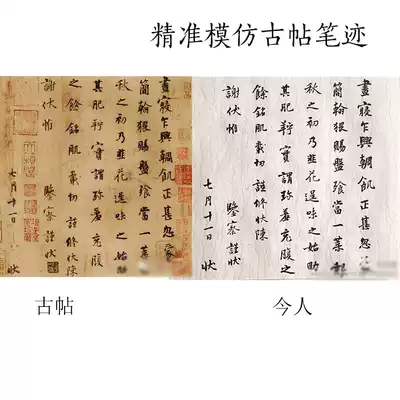 精准模仿古帖笔迹
晝寢乍興輖飢正甚忽蒙
簡翰猥賜盤飧當一葉
秋之初乃韭花逞味之始助
其肥羜實謂珍羞充腹
之餘銘肌載切謹修狀陳
鑒察謹狀
謝伏惟
七月十一 狀
晝寢乍興輖飢正甚忽
簡翰猥賜盤飧當一葉
秋之初乃韭花逞味之始助
其肥羜實謂珍羞充腹之
餘銘肌載切謹修狀陳
謝伏惟
鑒察謹狀
七月十一日 狀
古帖
今人